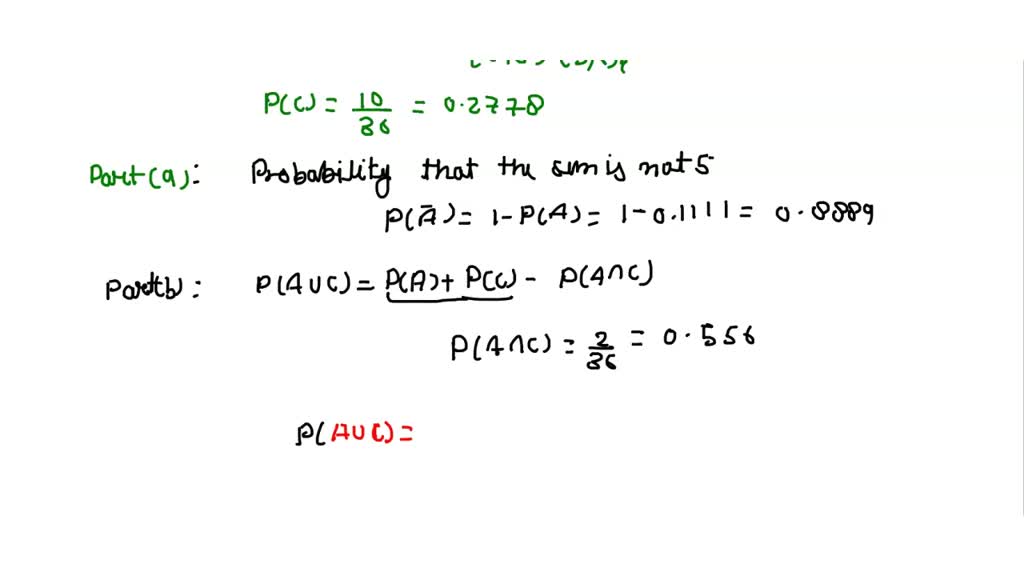 P(C) = 10/36 = 0.2778
Part(a): Probability that the sum is not 5
P(Ā) = 1 - P(A) = 1 - 0.1111 = 0.8889
Part b: P(A∪C) = P(A) + P(C) - P(A∩C)
P(A∩C) = 2/36 = 0.556
P(A∪C) =